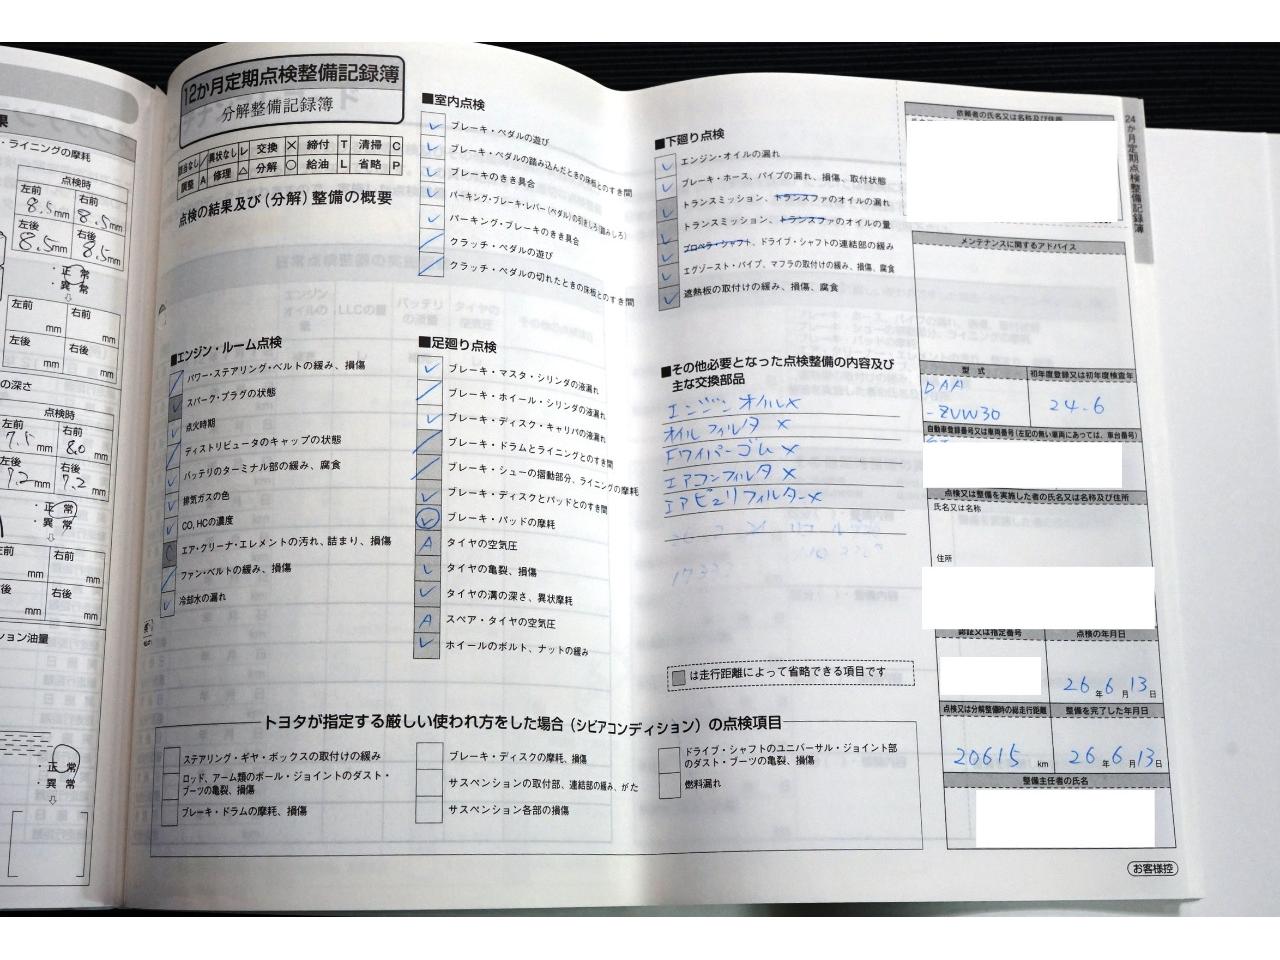 ・ライニングの摩耗
点検時
左前 右前
8.5mm 8.5mm
左後 右後
8.5mm 8.5mm
・正常
・異常
左前 右前
mm mm
左後 右後
mm mm
の深さ
点検時
左前 右前
7.5mm 8.0mm
左後 右後
7.2mm 7.2mm
・正常
・異常
右前
mm mm
右後
mm mm
ション油量
・正常
・異常
12か月定期点検整備記録簿
分解整備記録簿
該当なし / 異状なし レ 交換 × 締付 T 清掃 C
調整 A 修理 △ 分解 ○ 給油 L 省略 P
点検の結果及び(分解)整備の概要
■エンジン・ルーム点検
パワー・ステアリング・ベルトの緩み、損傷
スパーク・プラグの状態
点火時期
ディストリビュータのキャップの状態
バッテリのターミナル部の緩み、腐食
排気ガスの色
CO, HCの濃度
エア・クリーナ・エレメントの汚れ、詰まり、損傷
ファン・ベルトの緩み、損傷
冷却水の漏れ
■室内点検
ブレーキ・ペダルの遊び
ブレーキ・ペダルの踏み込んだときの床板とのすき間
ブレーキのきき具合
パーキング・ブレーキ・レバー(ペダル)の引きしろ(踏みしろ)
パーキング・ブレーキのきき具合
クラッチ・ペダルの遊び
クラッチ・ペダルの切れたときの床板とのすき間
■足廻り点検
ブレーキ・マスタ・シリンダの液漏れ
ブレーキ・ホイール・シリンダの液漏れ
ブレーキ・ディスク・キャリパの液漏れ
ブレーキ・ドラムとライニングとのすき間
ブレーキ・シューの摺動部分、ライニングの摩耗
ブレーキ・ディスクとパッドとのすき間
ブレーキ・パッドの摩耗
A タイヤの空気圧
タイヤの亀裂、損傷
タイヤの溝の深さ、異状摩耗
A スペア・タイヤの空気圧
ホイールのボルト、ナットの緩み
■下廻り点検
エンジン・オイルの漏れ
ブレーキ・ホース、パイプの漏れ、損傷、取付状態
トランスミッション、トランスファのオイルの漏れ
トランスミッション、トランスファのオイルの量
プロペラ・シャフト、ドライブ・シャフトの連結部の緩み
エグゾースト・パイプ、マフラの取付けの緩み、損傷、腐食
遮熱板の取付けの緩み、損傷、腐食
■その他必要となった点検整備の内容及び
主な交換部品
エンジンオイル×
オイルフィルタ ×
Fワイパーゴム ×
エアコンフィルタ ×
エアピュリフィルター×
は走行距離によって省略できる項目です
トヨタが指定する厳しい使われ方をした場合(シビアコンディション)の点検項目
ステアリング・ギヤ・ボックスの取付けの緩み
ロッド、アーム類のボール・ジョイントのダスト・
ブーツの亀裂、損傷
ブレーキ・ドラムの摩耗、損傷
ブレーキ・ディスクの摩耗、損傷
サスペンションの取付部、連結部の緩み、がた
サスペンション各部の損傷
ドライブ・シャフトのユニバーサル・ジョイント部
のダスト・ブーツの亀裂、損傷
燃料漏れ
依頼者の氏名又は名称及び住所
メンテナンスに関するアドバイス
型式 初年度登録又は初年度検査年
DAA
-ZVW30 24.6
自動車登録番号又は車両番号(左記の無い車両にあっては、車台番号)
点検又は整備を実施した者の氏名又は名称及び住所
氏名又は名称
住所
認証又は指定番号 点検の年月日
26年6月13日
点検又は分解整備時の総走行距離 整備を完了した年月日
20615 km 26年6月13日
整備主任者の氏名
24か月定期点検整備記録簿
お客様控